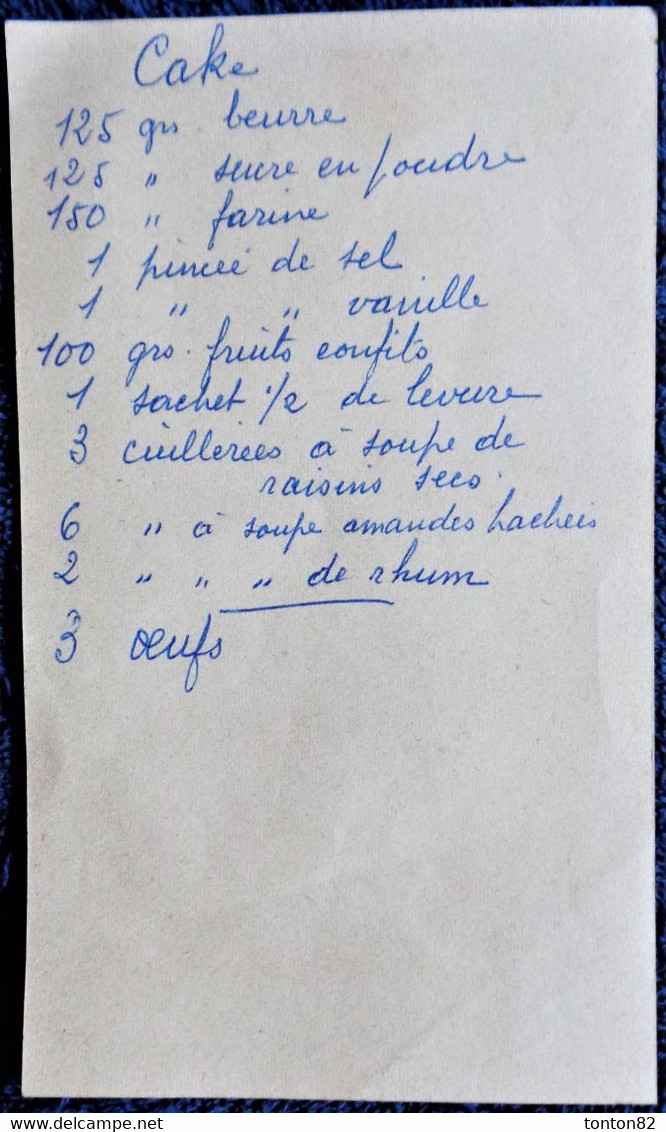 Cake
125 grs. beurre
125 " sucre en poudre
150 " farine
1 pincée de sel
1 " " vanille
100 grs. fruits confits
1 sachet 1/2 de levure
3 cuillerées à soupe de
raisins secs.
6 " à soupe amandes hachées
2 " " " de rhum
3 œufs
DELCAMPE.COM
tonton82